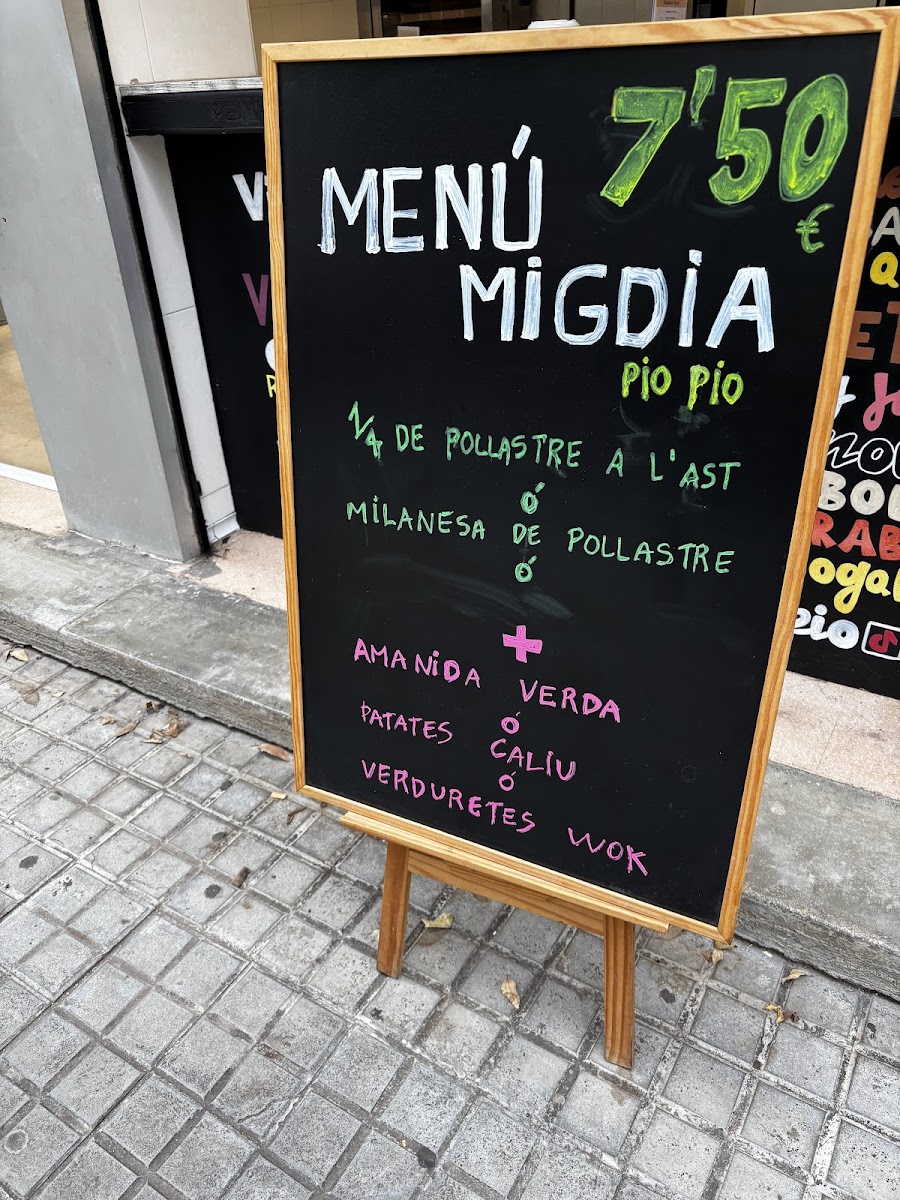 7'50
€
MENÚ
MiGDiA
Pio Pio
1/4 DE POLLASTRE A L'AST
ó
MiLANESA DE POLLASTRE
ó
+
AMANiDA VERDA
ó
PATATES CALIU
ó
VERDURETES WOK
BOL
RAB